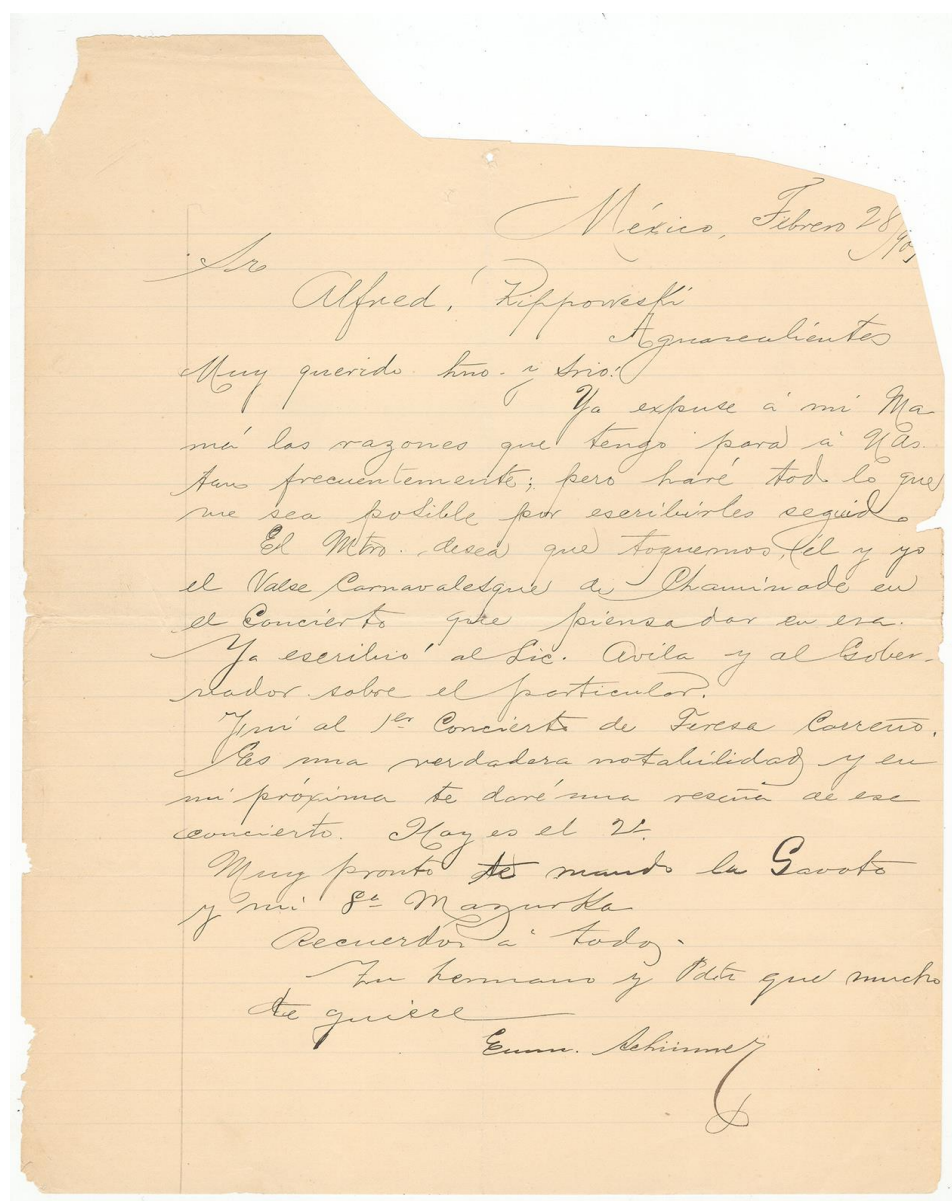 México, Febrero 28/90
Sr
Alfred. Rippoweski
Aguascalientes
Muy querido hno. y Srio:
Ya expuse á mi Ma
má las razones que tengo para á
frecuentemente; pero haré todo lo que
me sea posible por escribirles seguido
El Mtro. desea que toquemos, él y yo
el Valse Carnavalesque de Chaminade en
el Concierto que piensa dar en esa.
Ya escribió al Lic. Avila y al Gober-
nador sobre el particular.
Fuí al 1er Concierto de Teresa Carreño.
Es una verdadera notabilidad y en
mi próxima te daré una reseña de ese
concierto. Hoy es el 2º.
Muy pronto te mando la Gavota
y mi 8a Mazurka
Recuerdos á todos.
Tu hermano y Pdte que mucho
te quiere